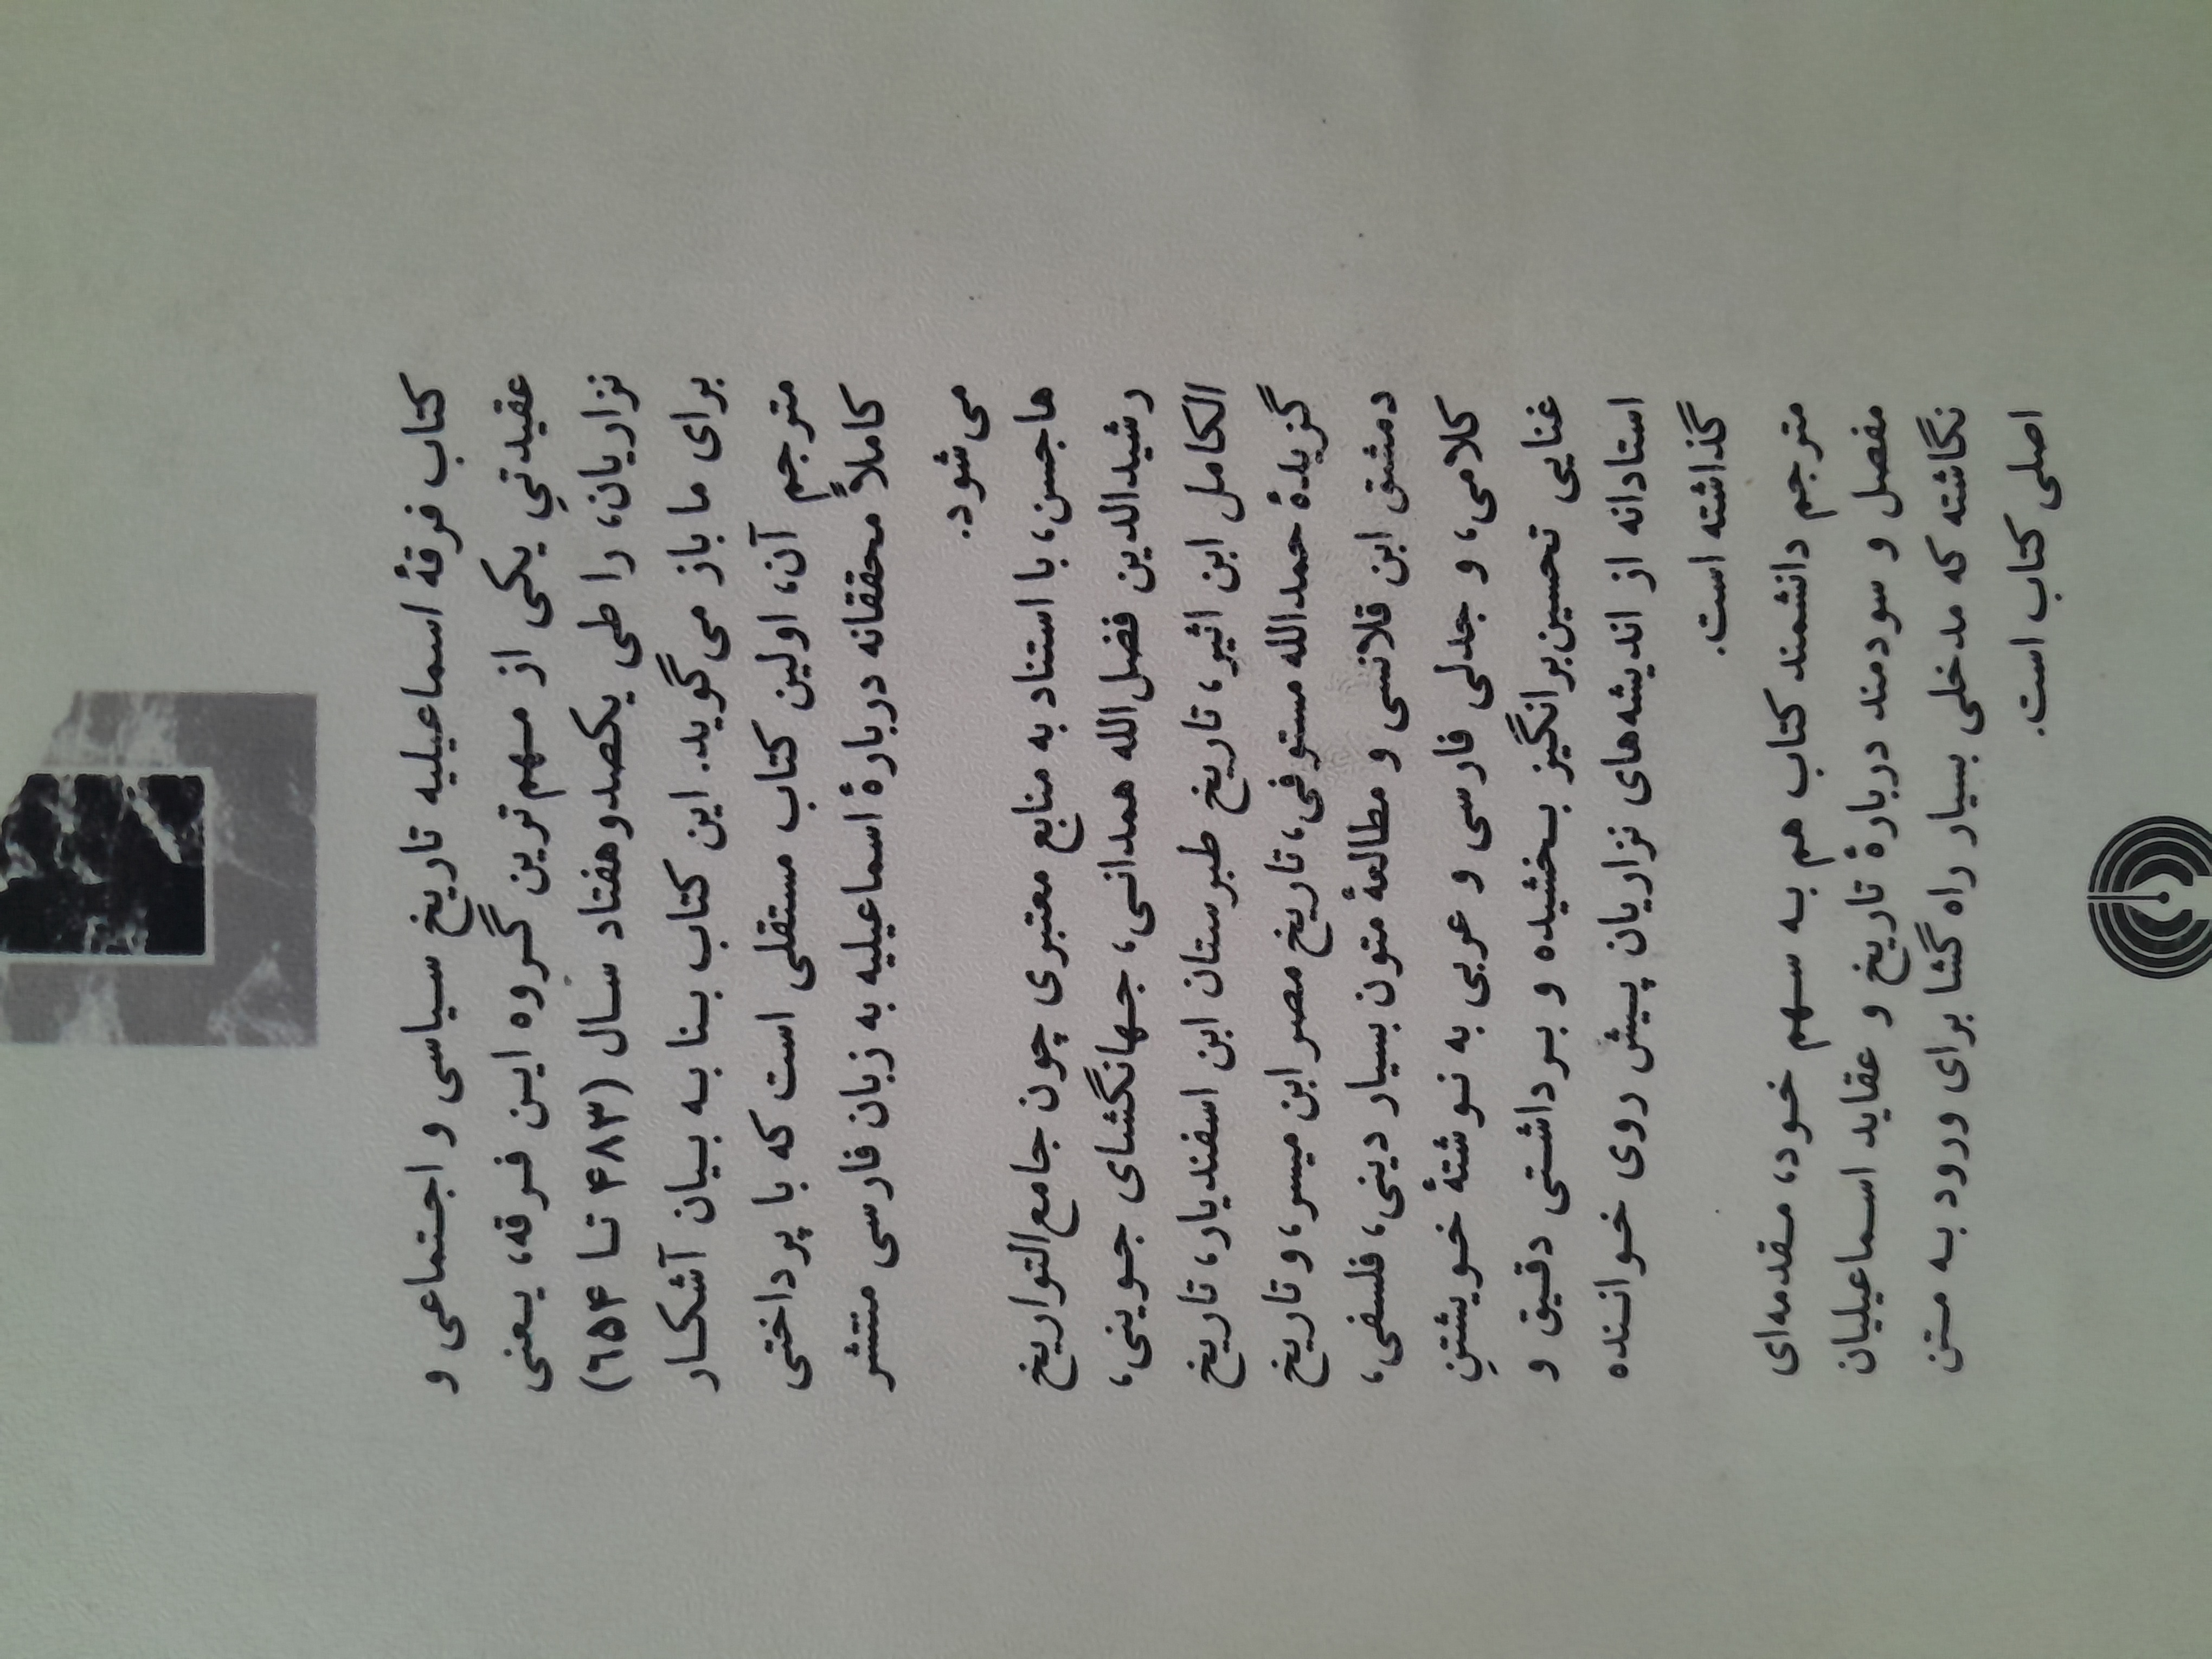 کتاب فرقهٔ اسماعیلیه تاریخ سیاسی و اجتماعی و
عقیدتیِ یکی از مهم‌ترین گروه این فرقه، یعنی
نزاریان، را طی یکصدوهفتاد سال (۴۸۳ تا ۶۵۴)
برای ما باز می‌گوید. این کتاب بنا به بیان آشکار
مترجم آن، اولین کتاب مستقلی است که با پرداختی
کاملاً محققانه دربارهٔ اسماعیلیه به زبان فارسی منتشر
می‌شود.
هاجسن، با استناد به منابع معتبری چون جامع‌التواریخ
رشیدالدین فضل‌الله همدانی، جهانگشای جوینی،
الکامل ابن اثیر، تاریخ طبرستان ابن اسفندیار، تاریخ
گزیدهٔ حمدالله مستوفی، تاریخ مصر ابن میسر، و تاریخ
دمشق ابن قلانسی و مطالعهٔ متون بسیار دینی، فلسفی،
کلامی، و جدلی فارسی و عربی به نوشتهٔ خویشتنِ
غنایی تحسین‌برانگیز بخشیده و برداشتی دقیق و
استادانه از اندیشه‌های نزاریان پیش روی خواننده
گذاشته است.
مترجم دانشمند کتاب هم به سهم خود، مقدمه‌ای
مفصل و سودمند دربارهٔ تاریخ و عقاید اسماعیلیان
نگاشته که مدخلی بسیار راه گشا برای ورود به متن
اصلی کتاب است.